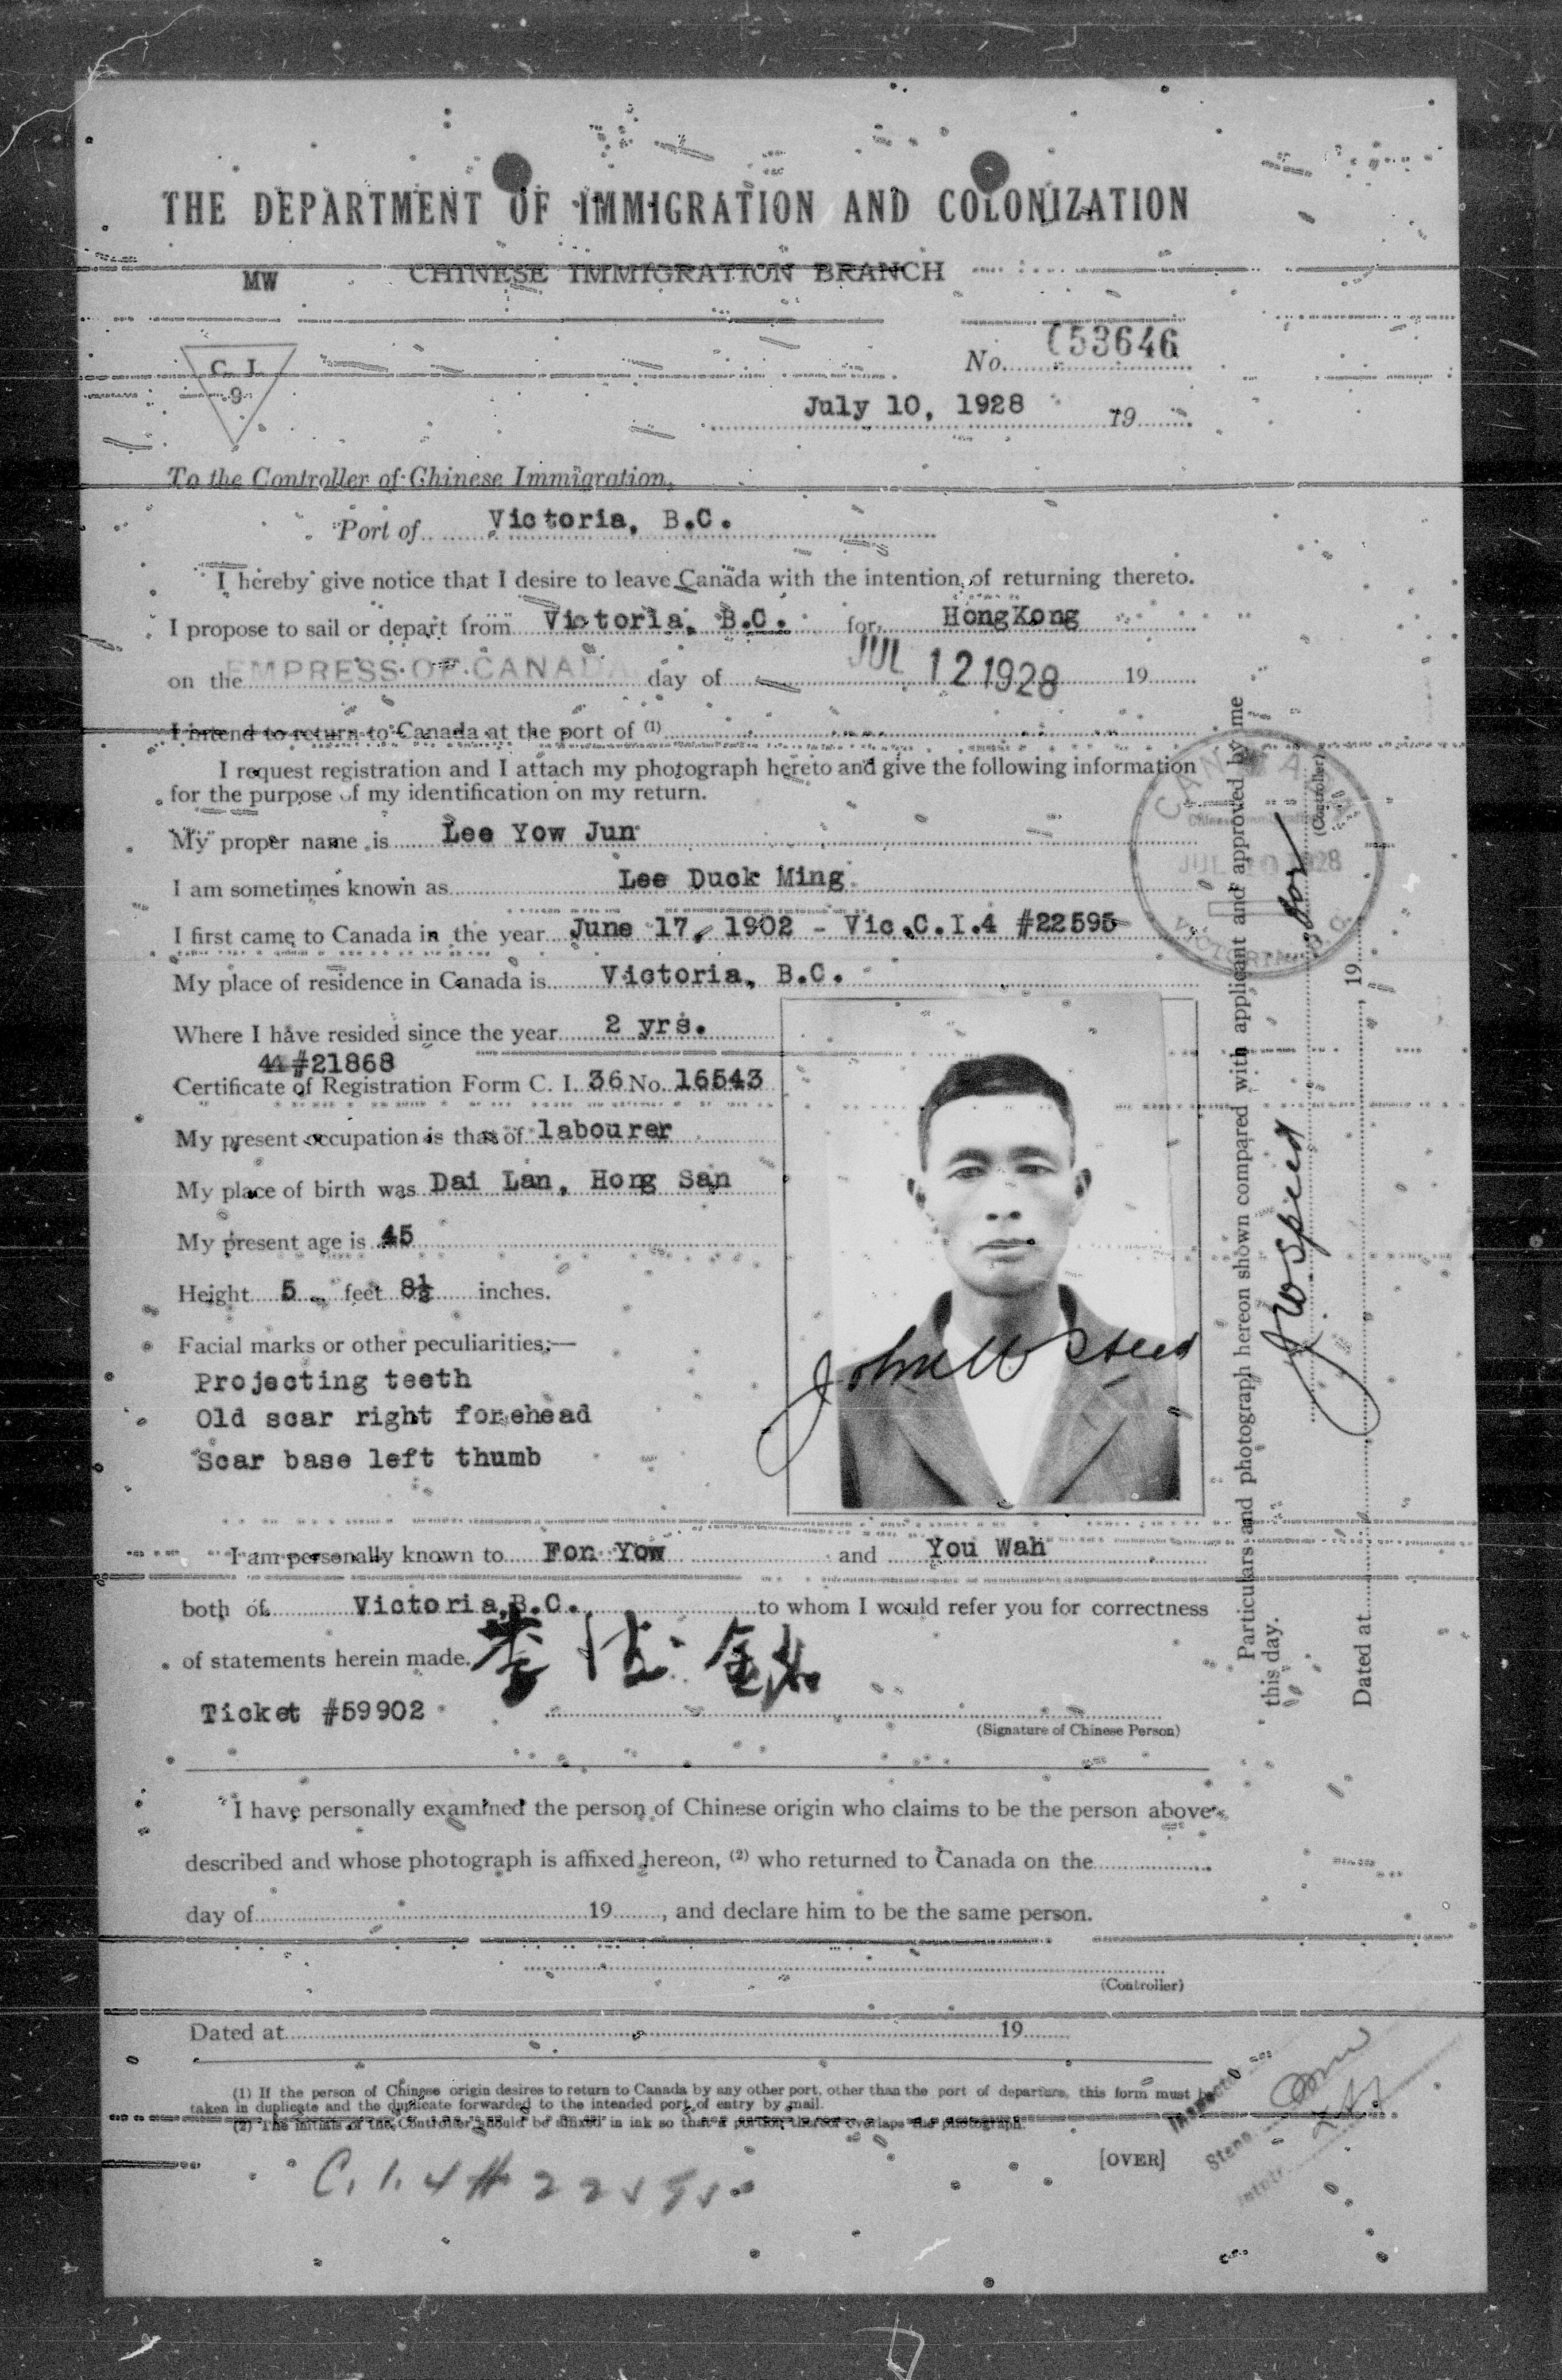 THE DEPARTMENT OF IMMIGRATION AND COLONIZATION
MW CHINESE IMMIGRATION BRANCH
C. I.
9
No. 53646
July 10, 1928 19
To the Controller of Chinese Immigration,
Port of Victoria, B.C.
I hereby give notice that I desire to leave Canada with the intention of returning thereto.
I propose to sail or depart from Victoria, B.C. for HongKong
on the EMPRESS OF CANADA day of JUL 12 1928 19
I intend to return to Canada at the port of (1)
I request registration and I attach my photograph hereto and give the following information
for the purpose of my identification on my return.
My proper name is Lee Yow Jun
I am sometimes known as Lee Duck Ming
I first came to Canada in the year June 17, 1902 - Vic.C.I.4 #22595
My place of residence in Canada is Victoria, B.C.
Where I have resided since the year 2 yrs.
44 #21868
Certificate of Registration Form C. I. 36 No. 16543
My present occupation is that of labourer
My place of birth was Dai Lan, Hong San
My present age is 45
Height 5 feet 8½ inches.
Facial marks or other peculiarities:—
Projecting teeth
Old scar right forehead
Scar base left thumb
I am personally known to Fon Yow and You Wah
both of Victoria, B.C. to whom I would refer you for correctness
of statements herein made. 李
Ticket #59902
(Signature of Chinese Person)
I have personally examined the person of Chinese origin who claims to be the person above
described and whose photograph is affixed hereon, (2) who returned to Canada on the
day of 19 , and declare him to be the same person.
(Controller)
Dated at 19
(1) If the person of Chinese origin desires to return to Canada by any other port, other than the port of departure, this form must be
taken in duplicate and the duplicate forwarded to the intended port of entry by mail.
(2) The initials of the Controller should be affixed in ink so that a portion thereof overlaps the photograph.
[OVER]
C.I.4 # 22595
Steno.
Particulars and photograph hereon shown compared with applicant and approved by me
this day.
(Controller)
Dated at , 19
CANADA
JUL 10 1928
VICTORIA, B.C.